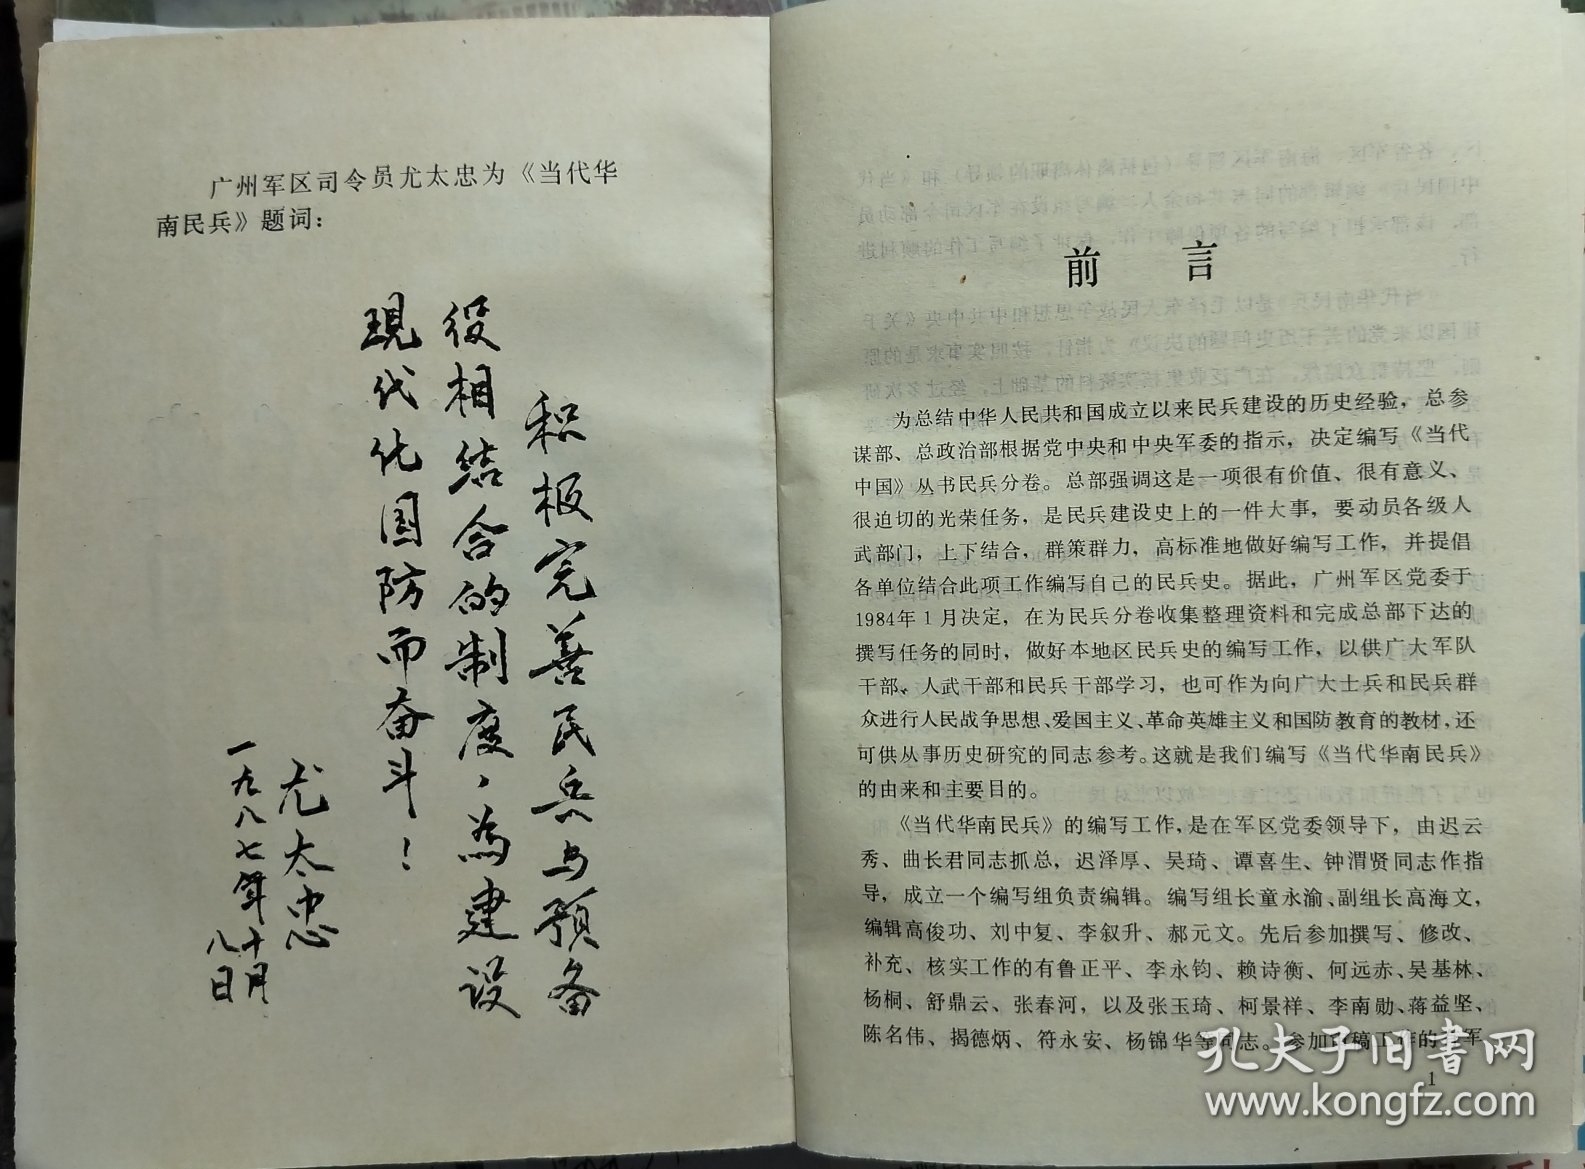 广州军区司令员尤太忠为《当代华
南民兵》题词：
积极完善民兵与预备
役相结合的制度，為建设
現代化国防而奋斗！
尤太忠
一九八七年十月
八日
前言
为总结中华人民共和国成立以来民兵建设的历史经验，总参
谋部、总政治部根据党中央和中央军委的指示，决定编写《当代
中国》丛书民兵分卷。总部强调这是一项很有价值、很有意义、
很迫切的光荣任务，是民兵建设史上的一件大事，要动员各级人
武部门，上下结合，群策群力，高标准地做好编写工作，并提倡
各单位结合此项工作编写自己的民兵史。据此，广州军区党委于
1984年1月决定，在为民兵分卷收集整理资料和完成总部下达的
撰写任务的同时，做好本地区民兵史的编写工作，以供广大军队
干部、人武干部和民兵干部学习，也可作为向广大士兵和民兵群
众进行人民战争思想、爱国主义、革命英雄主义和国防教育的教材，还
可供从事历史研究的同志参考。这就是我们编写《当代华南民兵》
的由来和主要目的。
《当代华南民兵》的编写工作，是在军区党委领导下，由迟云
秀、曲长君同志抓总，迟泽厚、吴琦、谭喜生、钟渭贤同志作指
导，成立一个编写组负责编辑。编写组长童永渝、副组长高海文，
编辑高俊功、刘中复、李叙升、郝元文。先后参加撰写、修改、
补充、核实工作的有鲁正平、李永钧、赖诗衡、何远赤、吴基林、
杨桐、舒鼎云、张春河，以及张玉琦、柯景祥、李南勋、蒋益坚、
陈名伟、揭德炳、符永安、杨锦华等同志。参加审稿工作的有军
1
孔夫子旧书网
www.kongfz.com